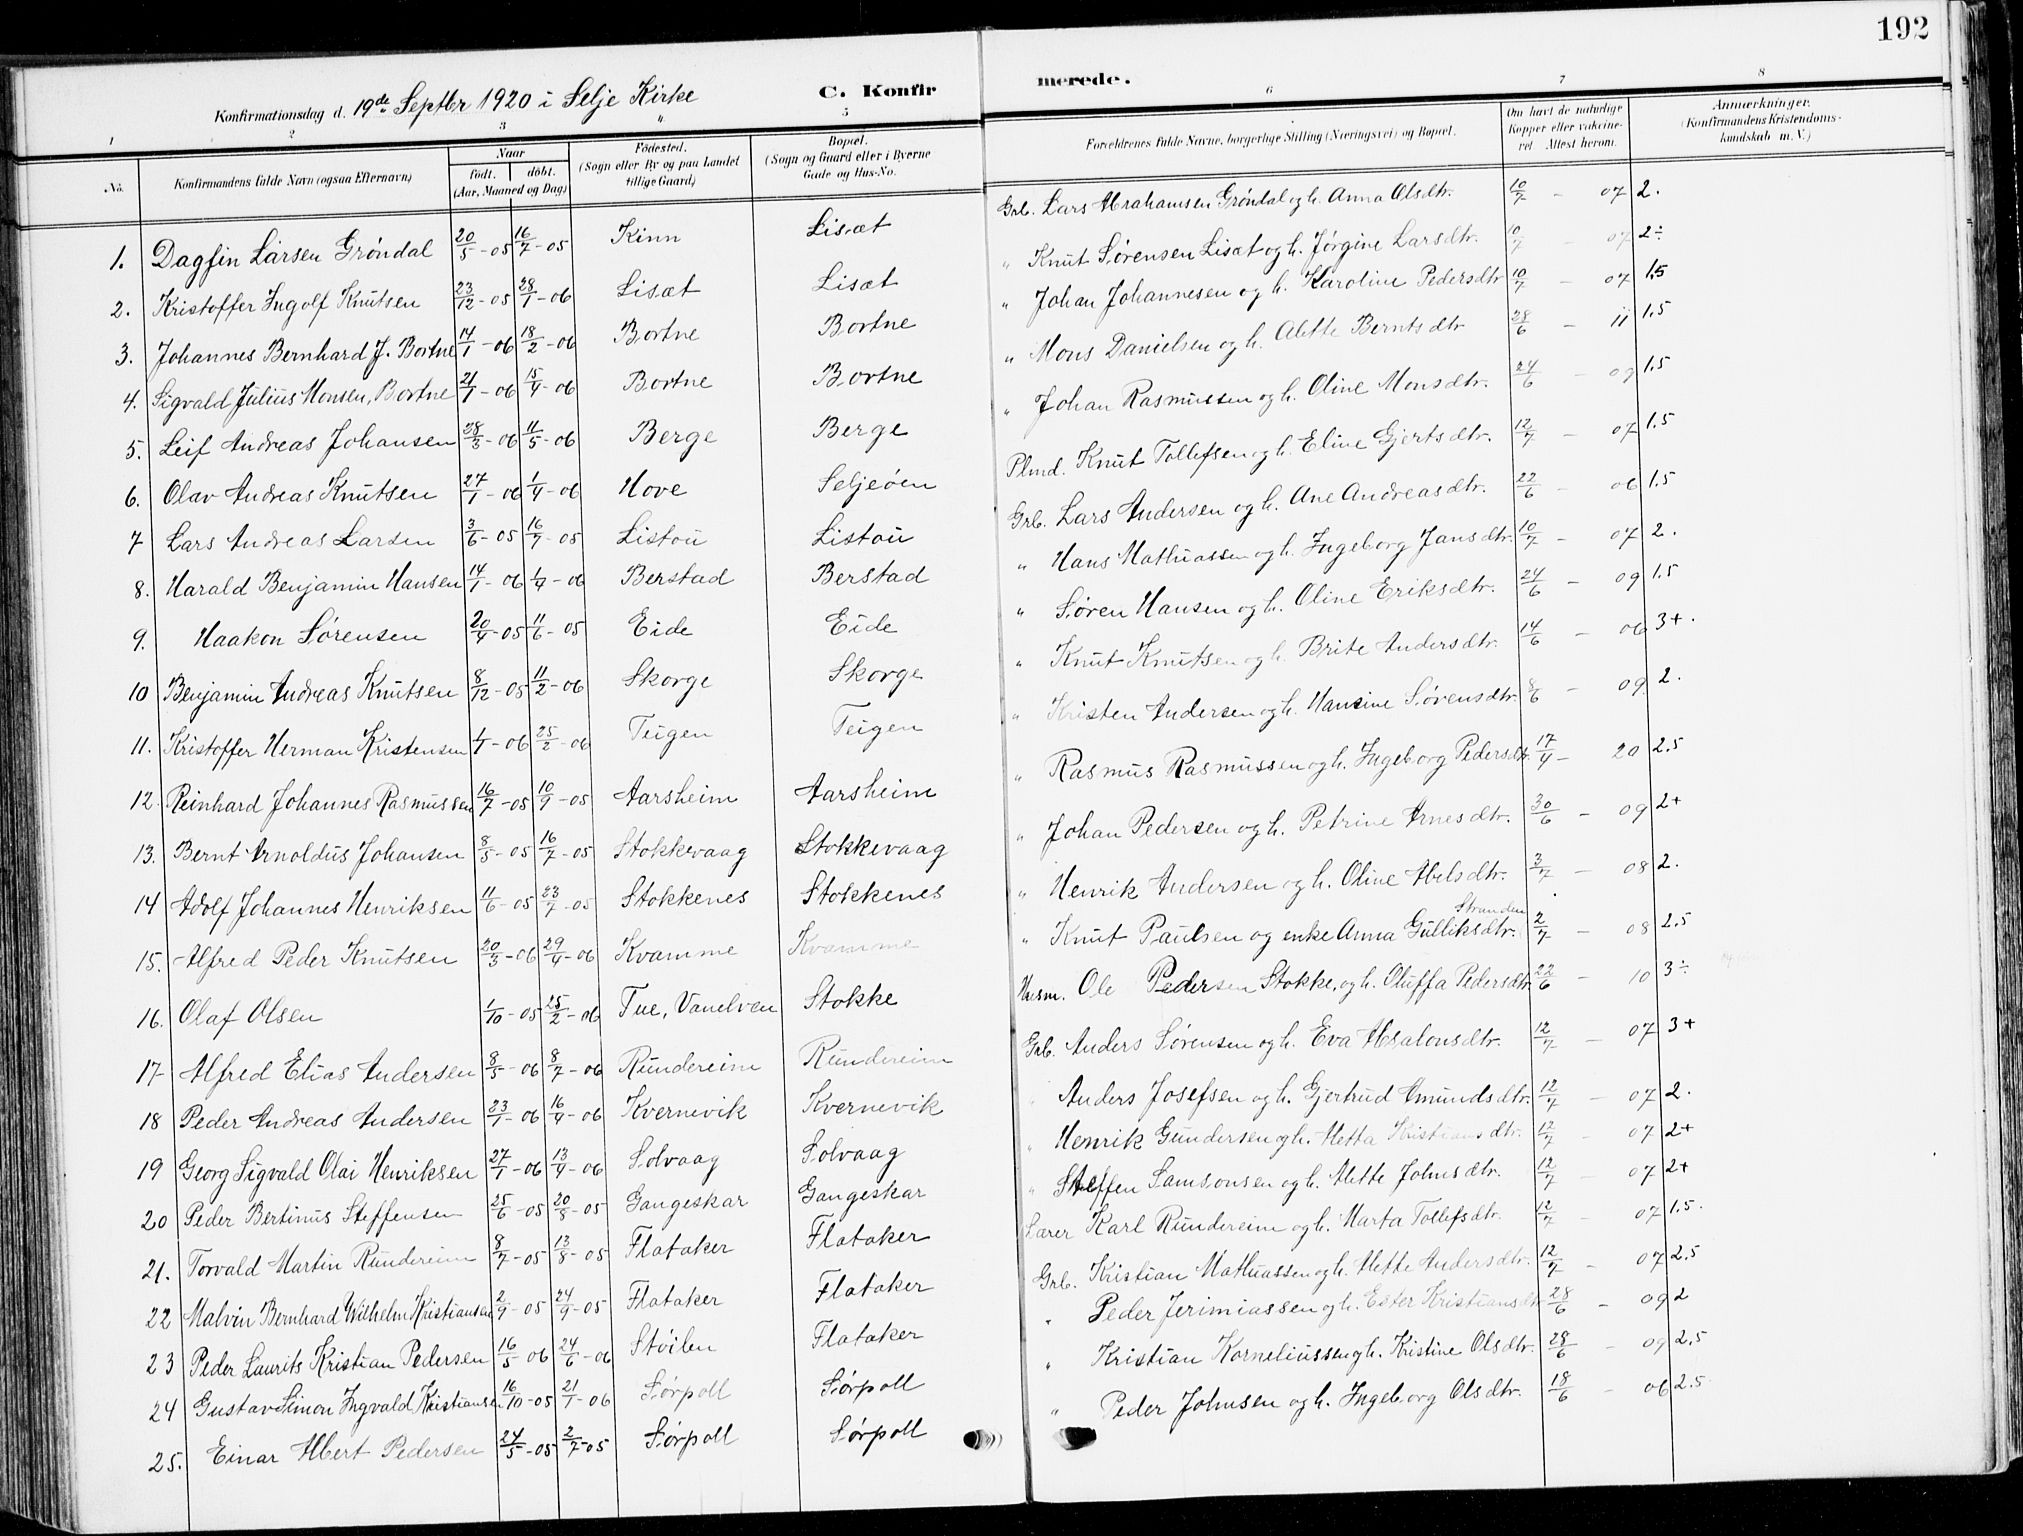 192
Konfirmationsdag d. 19de Septbr 1920 i Selje Kirke C. Konfirmerede.
1 2 3 " 5 6 7 8
No. Konfirmandens fulde Navn (ogsaa Efternavn) Naar født. døbt. (Aar, Maaned og Dag) Fødested. (Sogn eller By og paa Landet tillige Gaard) Bopæl. (Sogn og Gaard eller i Byerne Gade og Hus-No. Forældrenes fulde Navne, borgerlige Stilling (Næringsvei) og Bopæl. Om havt de naturlige Kopper eller vakcineret. Attest herom. Anmærkninger. (Konfirmandens Kristendomskundskab m. V.)
1. Dagfin Larsen Grøndal 20/5-05 16/7-05 Kinn Lisæt Grb. Lars Abrahamsen Grøndal og h. Anna Olsdtr. 10/7 - 07 2.
2. Kristoffer Ingolf Knutsen 23/12-05 28/1-06 Lisæt Lisæt " Knut Sørensen Lisæt og h. Jørgine Larsdtr. 10/7 - 07 2÷
3. Johannes Bernhard J. Bortne 14/1-06 18/2-06 Bortne Bortne " Johan Johannesen og h. Karoline Pedersdtr 10/7 - 07 1.5
4. Sigvald Julius Monsen, Bortne 21/1-06 15/4-06 Bortne Bortne " Mons Danielsen og h. Alette Berntsdtr 28/6 - 11 1.5
5. Leif Andreas Johansen 28/3-06 11/5-06 Berge Berge " Johan Rasmussen og h. Oline Monsdtr. 24/6 - 09 1.5
6. Olav Andreas Knutsen 27/1-06 1/4-06 Hove Seljeøen Plmd. Knut Tollefsen og h. Eline Gjertsdtr. 12/7 - 07 1.5
7 Lars Andreas Larsen 3/6-05 16/7-05 Listou Listou Grb. Lars Andersen og h. Ane Andreasdtr. 22/6 - 06 1.5
8. Harald Benjamin Hansen 14/1-06 1/4-06 Berstad Berstad " Hans Mathiassen og h. Ingeborg Jansdtr. 10/7 - 07 2.
9. Haakon Sørensen 20/4-05 11/6-05 Eide Eide " Søren Hansen og h. Oline Eriksdtr. 24/6 - 09 1.5
10 Benjamin Andreas Knutsen 8/12-05 11/2-06 Skorge Skorge " Knut Knutsen og h. Brite Andersdtr. 14/6 - 06 3+.
11. Kristoffer Herman Kristensen 1/1-06 25/2-06 Teigen Teigen " Kristen Andersen og h. Hansine Sørensdtr. 8/6 - 09. 2.
12. Reinhard Johannes Rasmussen 16/7-05 10/9-05 Aarsheim Aarsheim " Rasmus Rasmussen og h. Ingeborg Pedersdtr. 17/4 - 20 2.5
13. Bernt Arnoldus Johansen 8/5-05 16/7-05 Stokkevaag Stokkevaag " Johan Pedersen og h. Petrine Arnesdtr. 30/6 - 09 2+
14 Adolf Johannes Henriksen 11/6-05 23/7-05 Stokkenes Stokkenes " Henrik Andersen og h. Oline Abelsdtr. 3/7 - 08 2.
15. Alfred Peder Knutsen 20/3-06 29/4-06 Kvamme Kvamme " Knut Paulsen og enke Anna Gulliksdtr. Stranden 2/7 - 08 2.5
16. Olaf Olsen 1/10-05 25/2-06 Tue, Vanelven Stokke Husm. Ole Pedersen Stokke, og h. Oluffa Pedersdtr 22/6 - 10 3÷
17 Alfred Elias Andersen 8/5-06 8/7-06 Rundereim Rundereim Grb. Anders Sørensen og h. Eva Absalonsdtr. 12/7 - 07 3+
18 Peder Andreas Andersen 23/1-06 16/4-06 Kvernevik Kvernevik " Anders Josefsen og h. Gjertrud Amundsdtr. 12/7 - 07 2.
19 Georg Sigvald Olai Henriksen 27/1-06 13/4-06 Solvaag Solvaag " Henrik Gundersen og h. Mette Kristiansdtr. 12/7 - 07 2+
20 Peder Bertinus Steffensen 25/6-05 20/8-05 Gangeskar Gangeskar " Steffen Samsonsen og h. Mette Johnsdtr. 12/7 - 07 2+
21. Torvald Martin Rundereim 8/7-05 13/8-05 Flataker Flataker Lærer Karl Rundereim og h. Marta Tollefsdtr. 12/7 - 07 1.5.
22 Malvin Bernhard Wilhelm Kristiansen 2/9-05 24/9-05 Flataker Flataker Grb. Kristian Mathiassen og h. Mette Andersdtr. 12/7 - 07 2.5
23 Peder Laurits Kristian Pedersen 16/5-06 24/6-06 Støilen Flataker " Peder Jerimiassen og h. Ester Kristiansdtr 28/6 - 09 2
24 Gustav Simon Ingvald Kristiansen 16/10-05 21/1-06 Sørpoll Sørpoll " Kristian Korneliussen og h. Kristine Olsdtr. 28/6 - 09 2.5
25. Einar Albert Pedersen 24/5-05 2/7-05 Sørpoll Sørpoll " Peder Johnsen og h. Ingeborg Olsdtr. 18/6 - 06 2.5